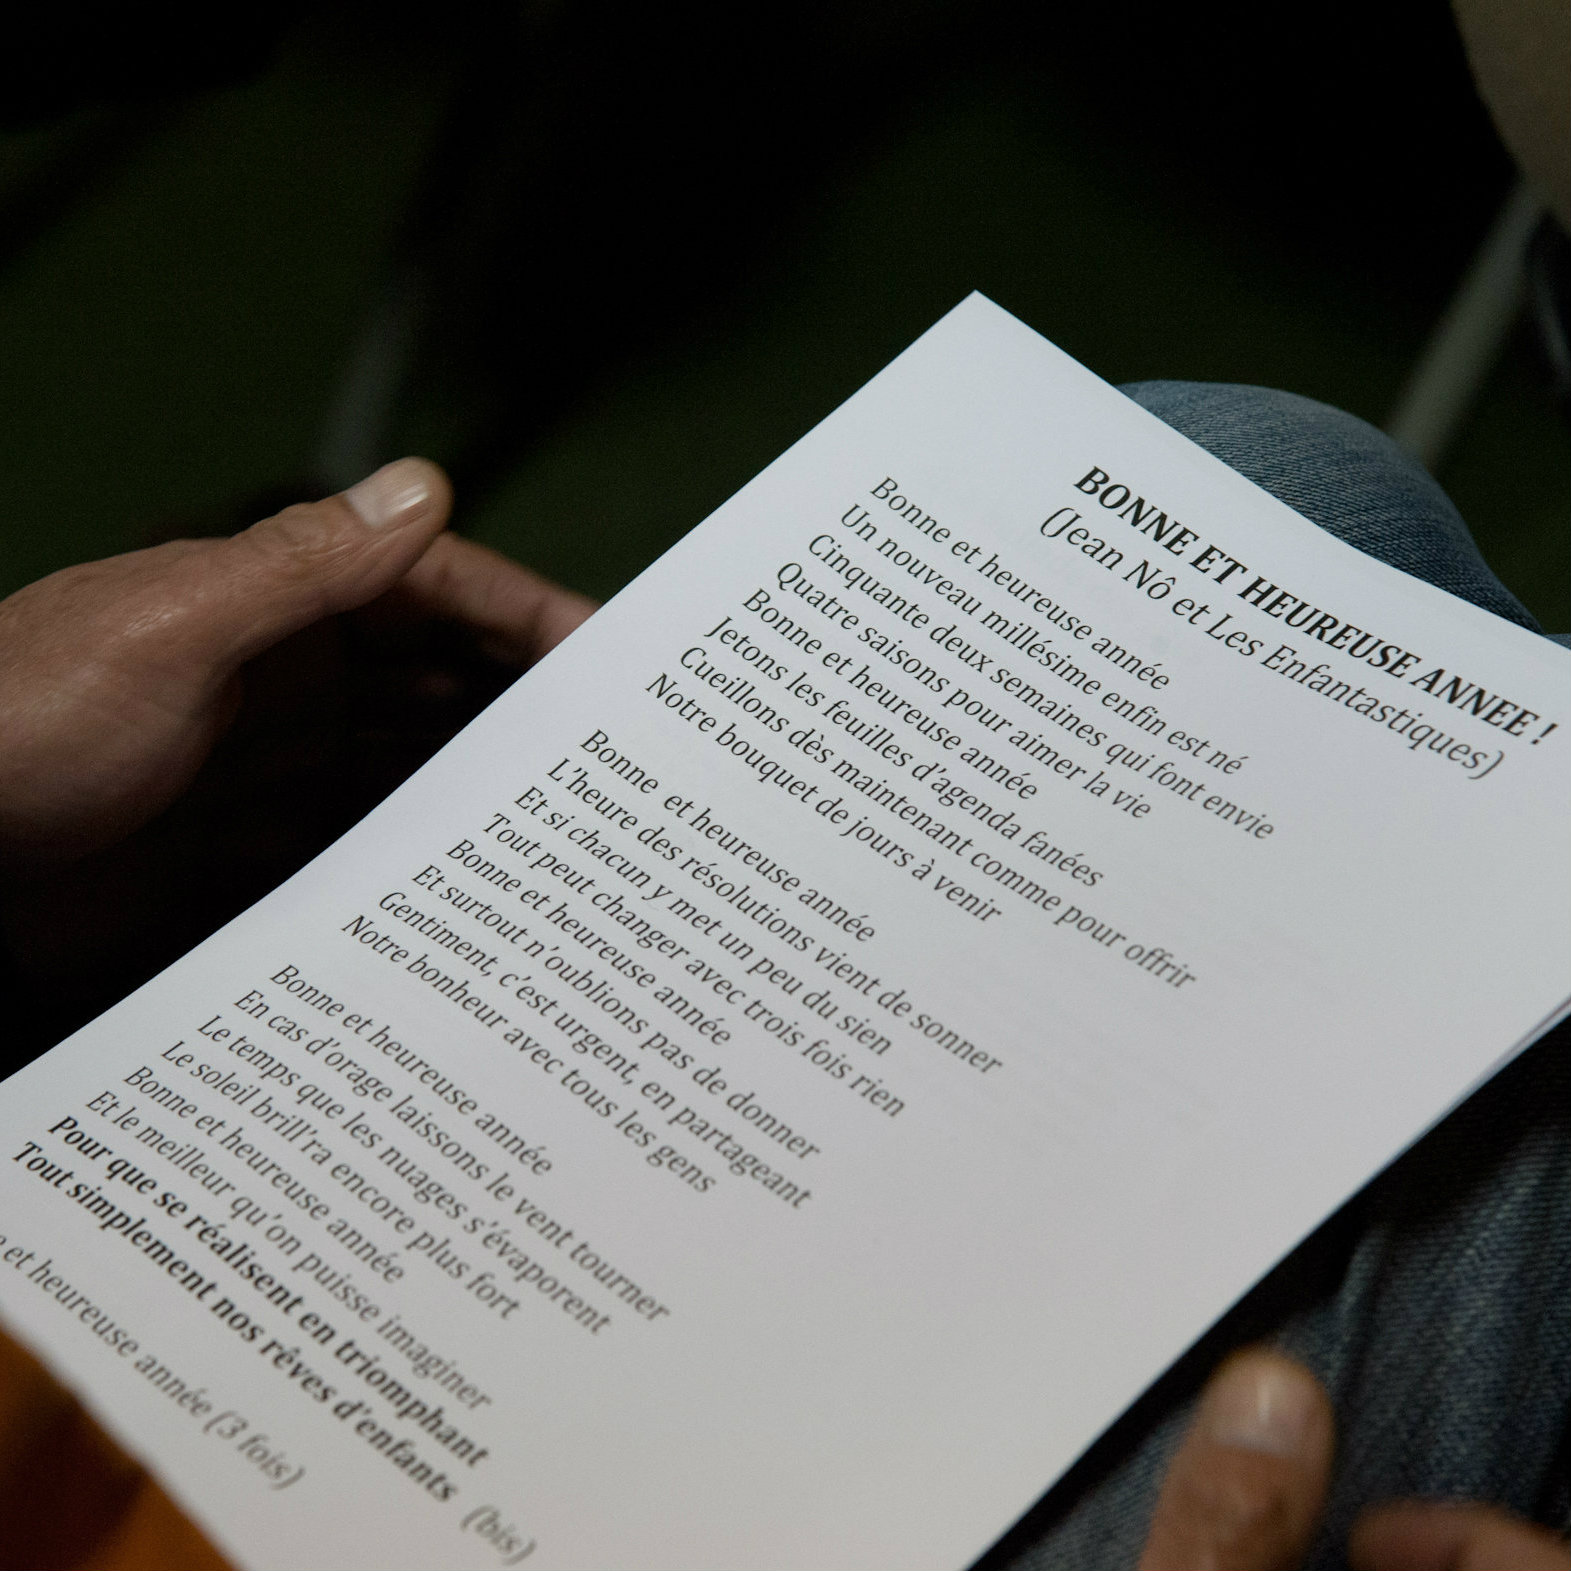 BONNE ET HEUREUSE ANNEE !
(Jean Nô et Les Enfantastiques)
Bonne et heureuse année
Un nouveau millésime enfin est né
Cinquante deux semaines qui font envie
Quatre saisons pour aimer la vie
Bonne et heureuse année
Jetons les feuilles d'agenda fanées
Cueillons dès maintenant comme pour offrir
Notre bouquet de jours à venir
Bonne et heureuse année
L'heure des résolutions vient de sonner
Et si chacun y met un peu du sien
Tout peut changer avec trois fois rien
Bonne et heureuse année
Et surtout n'oublions pas de donner
Gentiment, c'est urgent, en partageant
Notre bonheur avec tous les gens
Bonne et heureuse année
En cas d'orage laissons le vent tourner
Le temps que les nuages s'évaporent
Le soleil brill'ra encore plus fort
Bonne et heureuse année
Et le meilleur qu'on puisse imaginer
Pour que se réalisent en triomphant
Tout simplement nos rêves d'enfants (bis)
et heureuse année (3 fois)